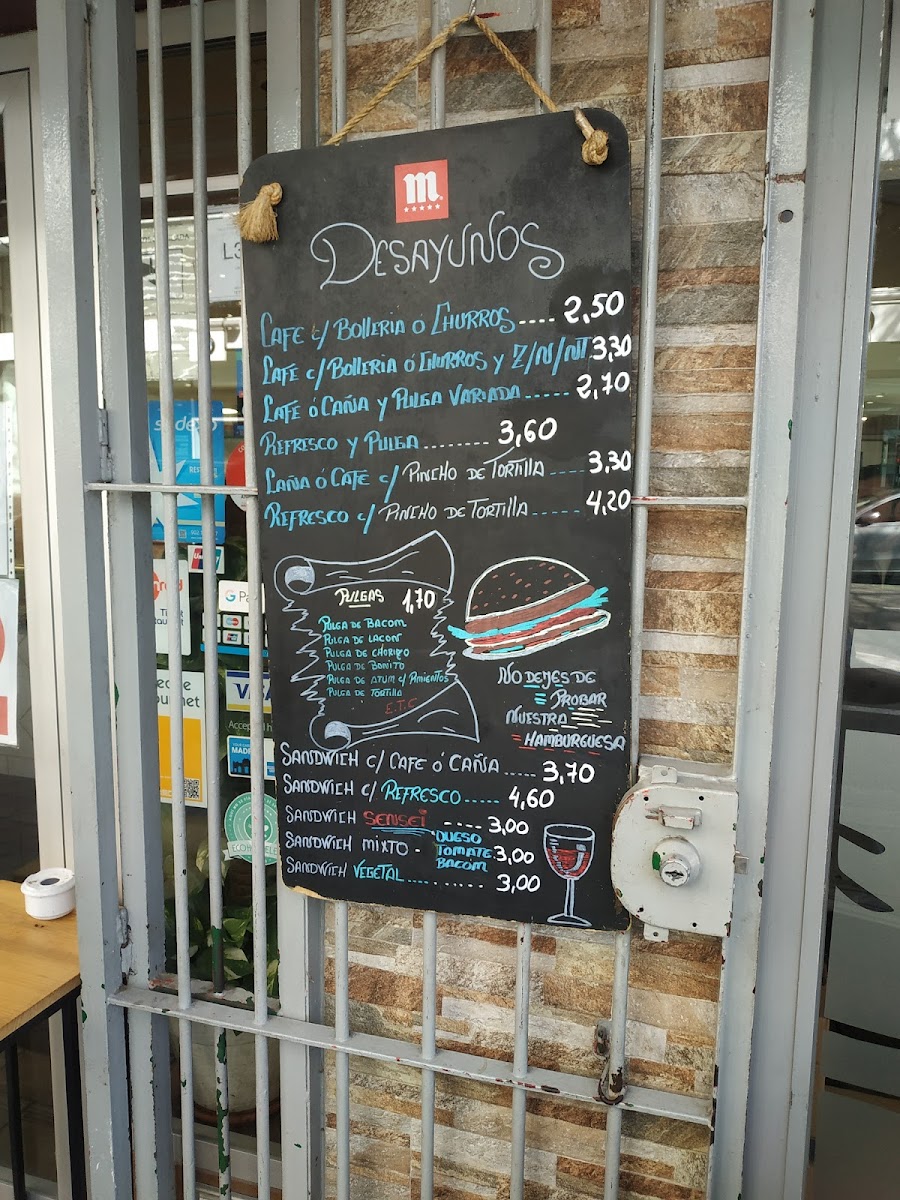 m
DESAYUNOS
CAFE c/ BOLLERIA ó CHURROS ---- 2,50
CAFE c/ BOLLERIA ó CHURROS Y Z/N/NT. 3,30
CAFE ó CAÑA Y PULGA VARIADA ----- 2,70
REFRESCO Y PULGA ........ 3,60
CAÑA ó CAFE c/ PINCHO DE TORTILLA ---- 3,30
REFRESCO c/ PINCHO DE TORTILLA ------ 4,20
PULGAS 1,70
PULGA DE BACOM
PULGA DE LACON
PULGA DE CHORIZO
PULGA DE BONITO
PULGA DE ATUM c/ PIMIENTOS
PULGA DE TORTILLA
E.T.C
NO DEJES DE
PROBAR
NUESTRA
HAMBURGUESA
SANDWICH c/ CAFE ó CAÑA ..... 3,70
SANDWICH c/ REFRESCO ----- 4,60
SANDWICH SENSEI ---- 3,00
SANDWICH MIXTO - QUESO TOMATE BACOM 3,00
SANDWICH VEGETAL ......... 3,00
L3
G P
VISA